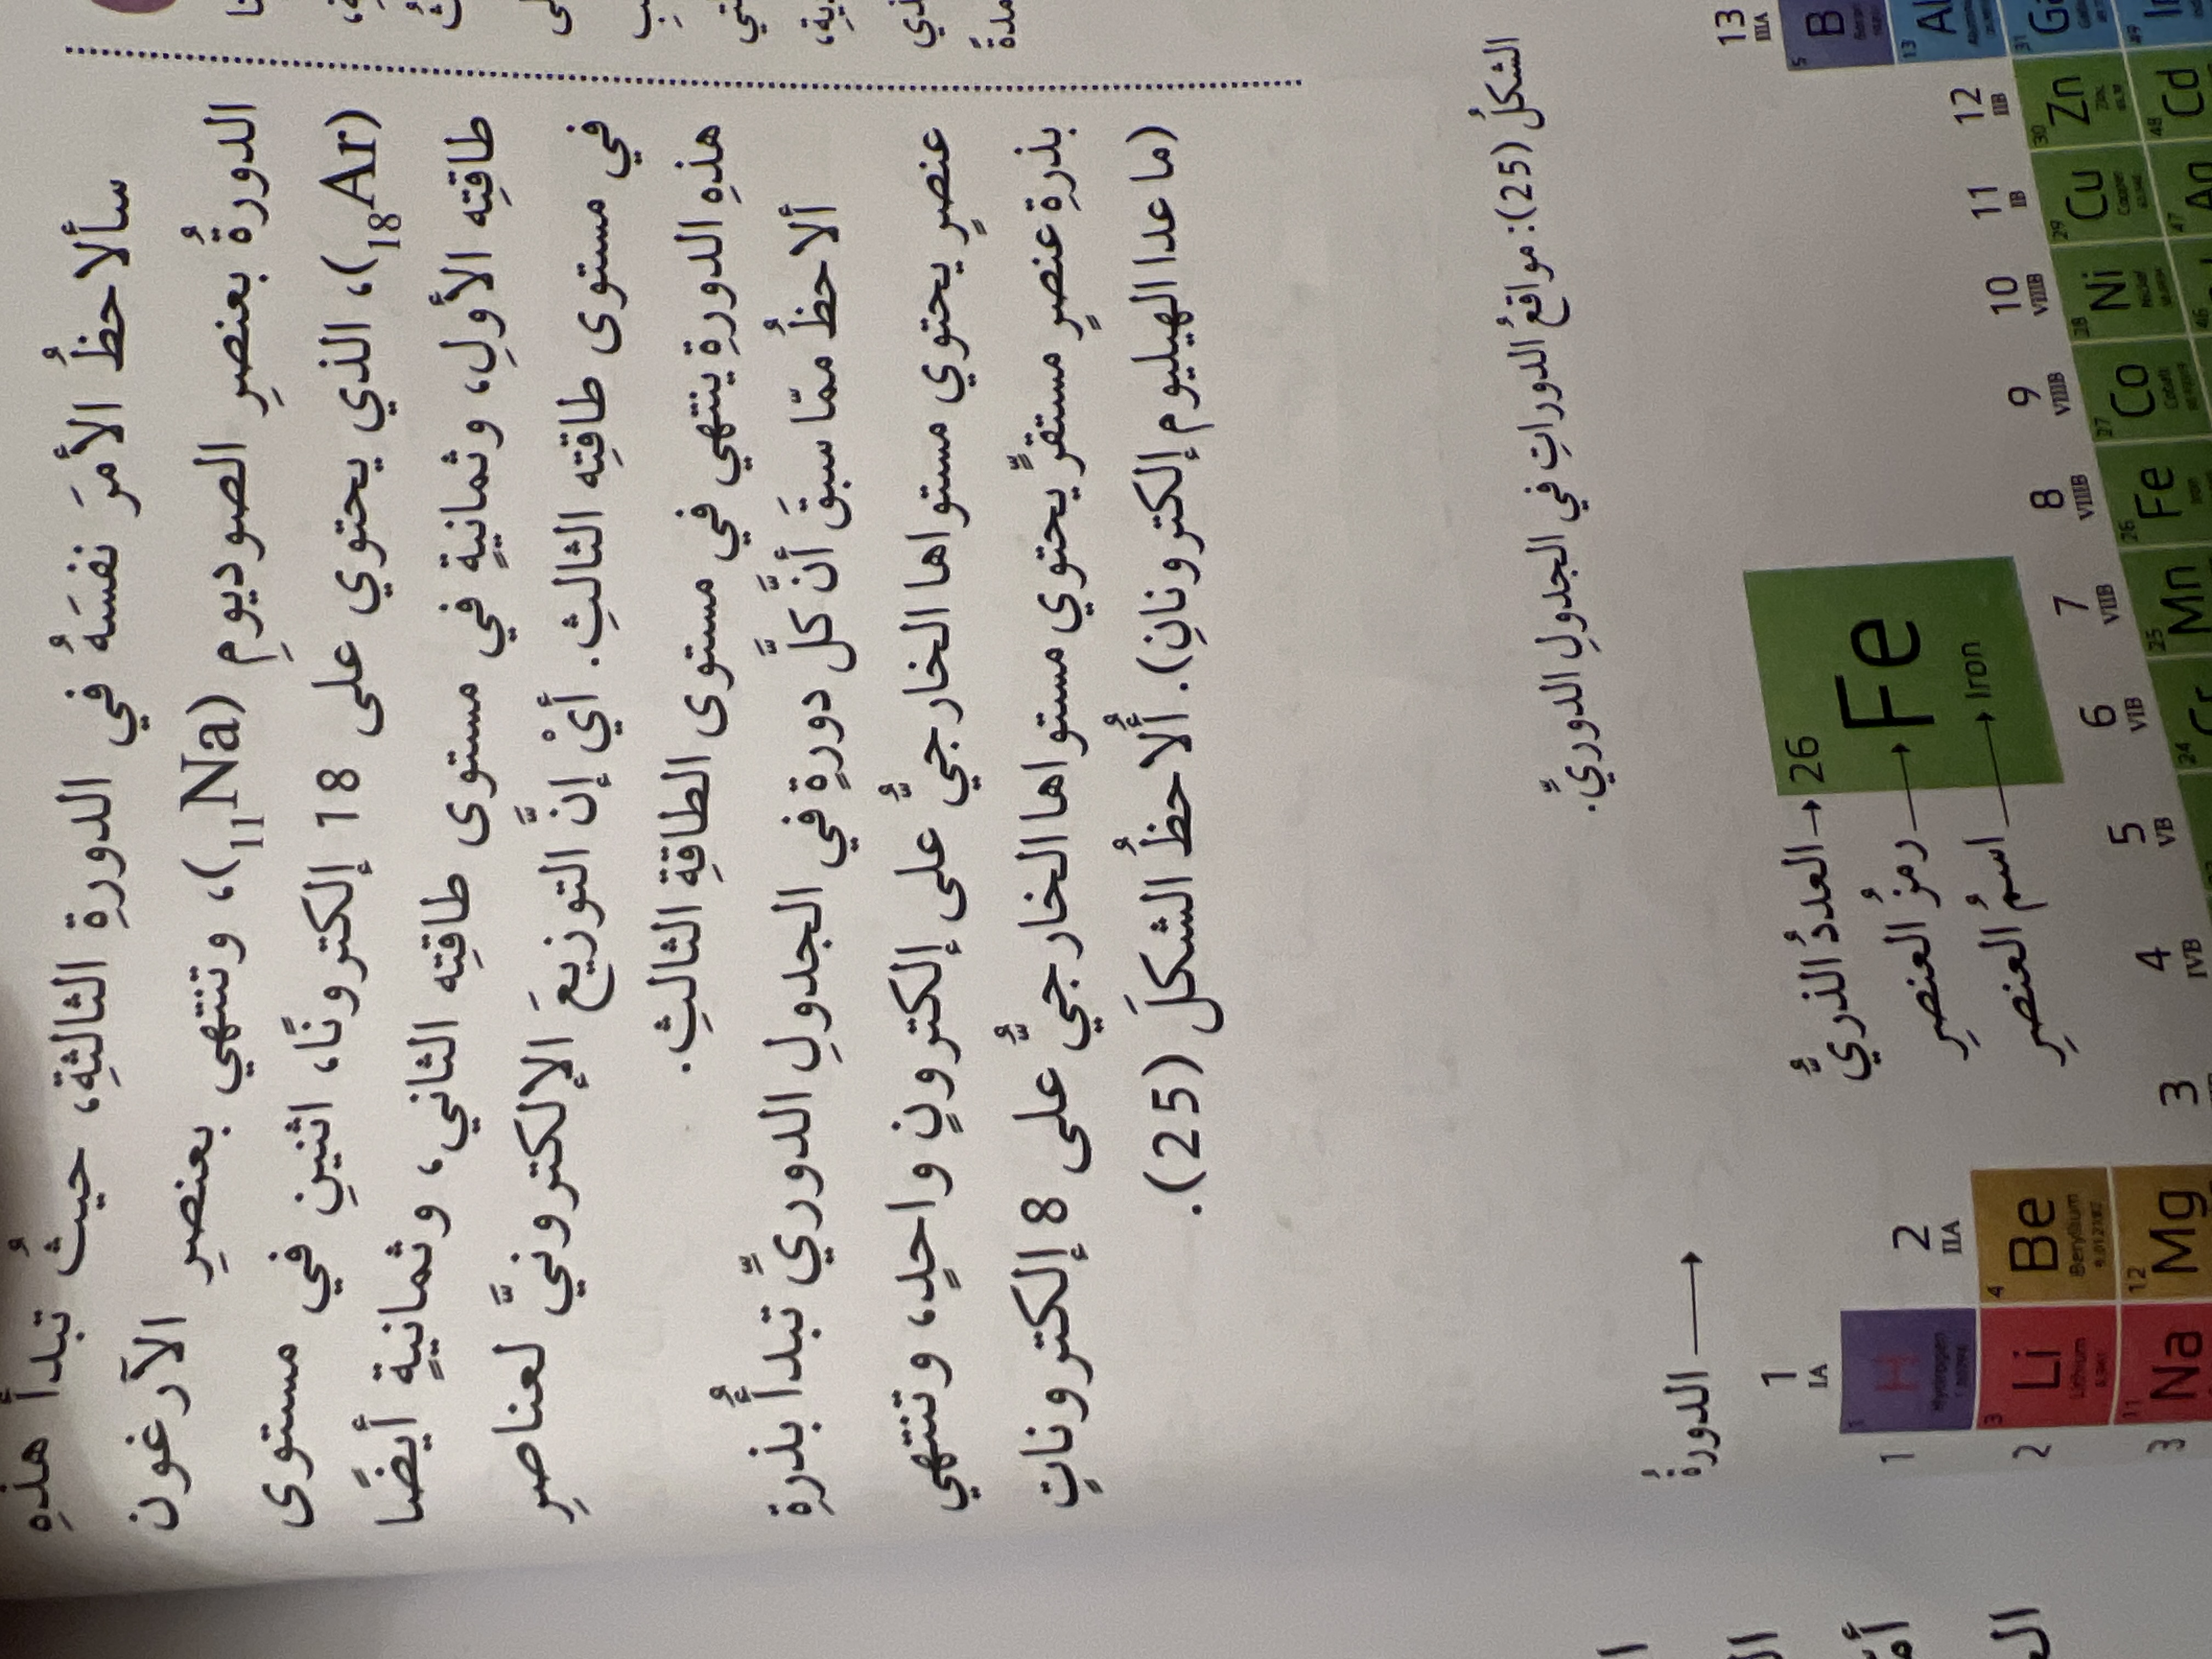 سألاحظُ الأمرَ نفسَهُ في الدورةِ الثالثةِ، حيثُ تبدأُ هذهِ
الدورةُ بعنصرِ الصوديومِ (₁₁Na)، وتنتهي بعنصرِ الآرغون
(₁₈Ar)، الذي يحتوي على 18 إلكترونًا، اثنينِ في مستوى
طاقتِه الأولِ، وثمانيةٍ في مستوى طاقتِه الثاني، وثمانيةٍ أيضًا
في مستوى طاقتِه الثالثِ. أيْ إنَّ التوزيعَ الإلكترونيَّ لعناصرِ
هذهِ الدورةِ ينتهي في مستوى الطاقةِ الثالثِ.
ألاحظُ ممّا سبقَ أنَّ كلَّ دورةٍ في الجدولِ الدوريِّ تبدأُ بذرةِ
عنصرٍ يحتوي مستواها الخارجيُّ على إلكترونٍ واحدٍ، وتنتهي
بذرةِ عنصرٍ مستقرٍّ يحتوي مستواها الخارجيُّ على 8 إلكتروناتٍ
(ما عدا الهيليوم إلكترونانِ). ألُاحظُ الشكلَ (25).
الشكلُ (25): مواقعُ الدوراتِ في الجدولِ الدوريِّ.
الدورةُ
العددُ الذريُّ → 26
رمزُ العنصرِ → Fe
اسمُ العنصرِ → Iron
1 2 3 4 5 6 7 8 9 10 11 12 13
IA IIA IVB VB VIB VIIB VIIIB VIIIB VIIIB IB IIB IIIA
1 1 H Hydrogen 5 B
2 3 Li Lithium 4 Be Beryllium 9.012182 13 Al
3 11 Na 12 Mg 24 Cr 25 Mn 26 Fe Iron 27 Co Cobalt 28 Ni Nickel 29 Cu Copper 30 Zn Zinc 31 Ga
47 Ag 48 Cd 49 In